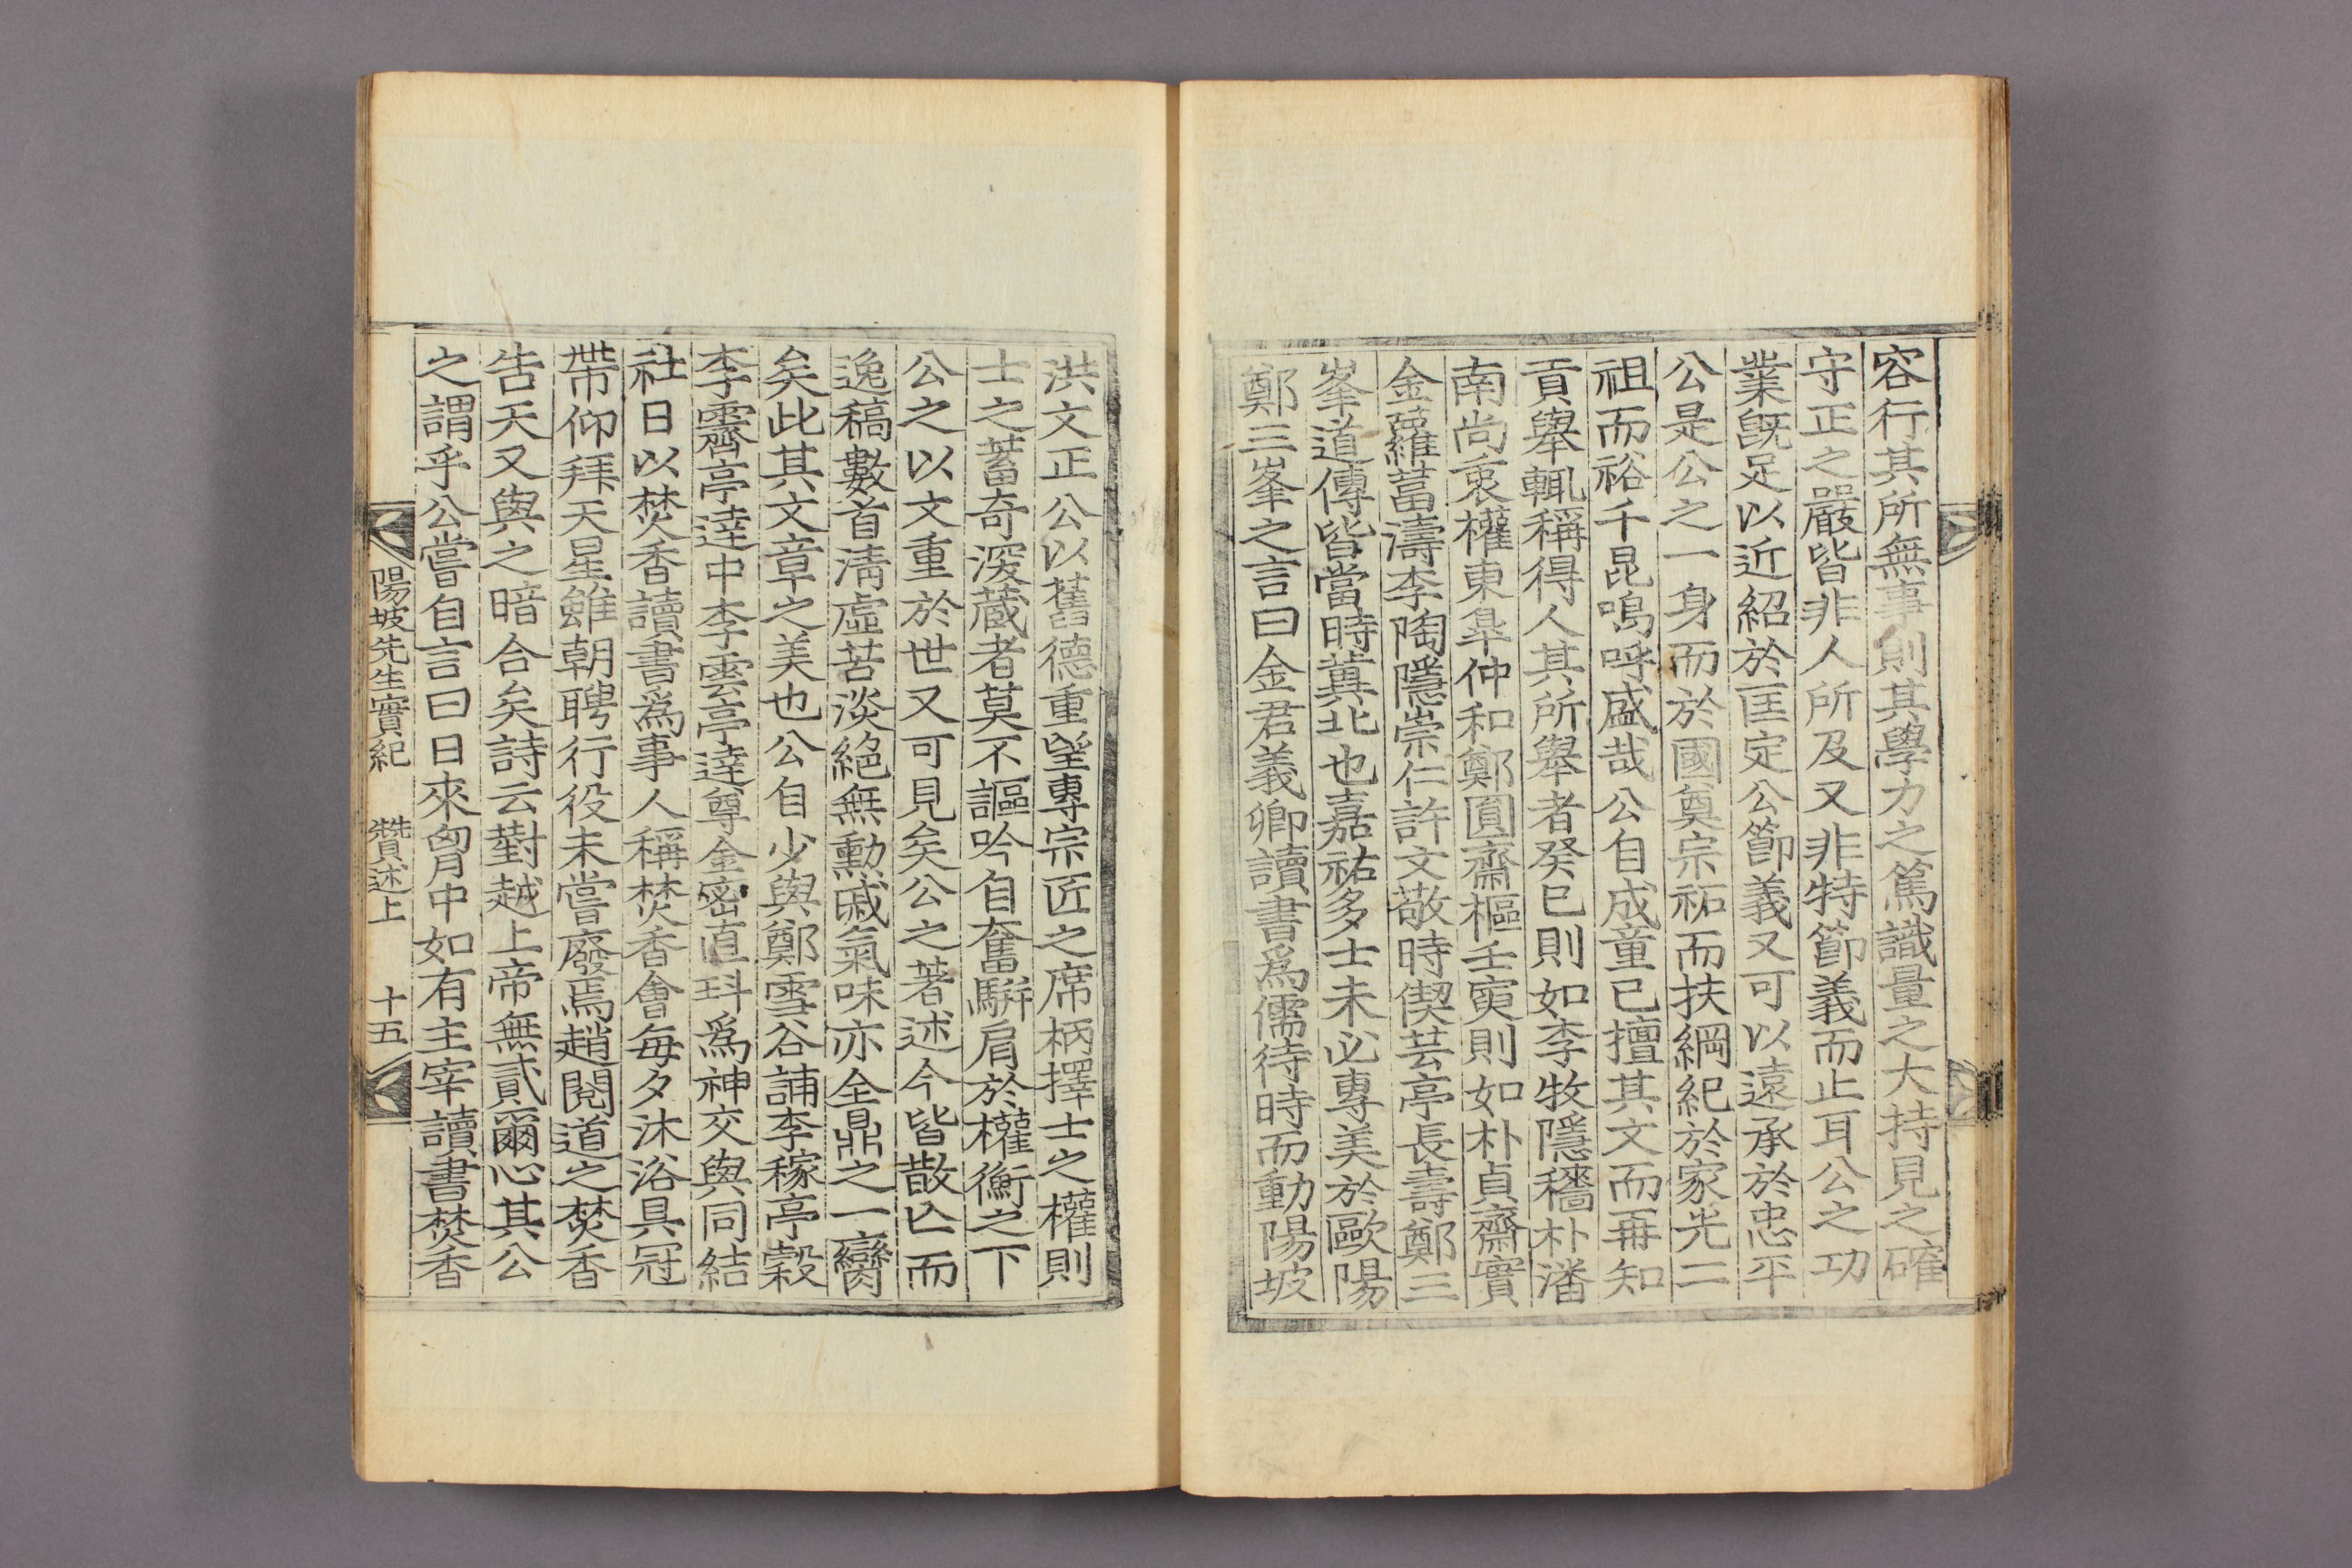 容行其所無事則其學力之篤識量之大持見之確
守正之嚴皆非人所及又非特節義而止耳公之功
業旣足以近紹於匡定公節義又可以遠承於忠平
公是公之一身而於國奠宗祏而扶綱紀於家光二
祖而裕千昆嗚呼盛哉公自成童已擅其文而再知
貢舉輒稱得人其所舉者癸巳則如李牧隱穡朴潘
南尚衷權東臯仲和鄭圓齋樞壬寅則如朴貞齋實
金蘿葍濤李陶隱崇仁許文敬時偰芸亭長壽鄭三
峯道傳皆當時冀北也嘉祐多士未必專美於歐陽
鄭三峯之言曰金君義卿讀書爲儒待時而動陽坡
洪文正公以舊德重望專宗匠之席柄擇士之權則
士之蓄奇深蔵者莫不謳吟自奮騈肩於權衡之下
公之以文重於世又可見矣公之著述今皆散亾而
逸稿數首淸虛苦淡絕無勳戚氣味亦全鼎之一臠
矣此其文章之美也公自少與鄭雪谷誧李稼亭穀
李霽亭達中李雲亭達尊金密直科爲神交與同結
社日以焚香讀書爲事人稱焚香會每夕沐浴具冠
帶仰拜天星雖朝聘行役未嘗廢焉趙閱道之焚香
告天又與之暗合矣詩云對越上帝無貳爾心其公
之謂乎公嘗自言曰日來胷中如有主宰讀書焚香
陽坡先生實紀 贊述上 十五